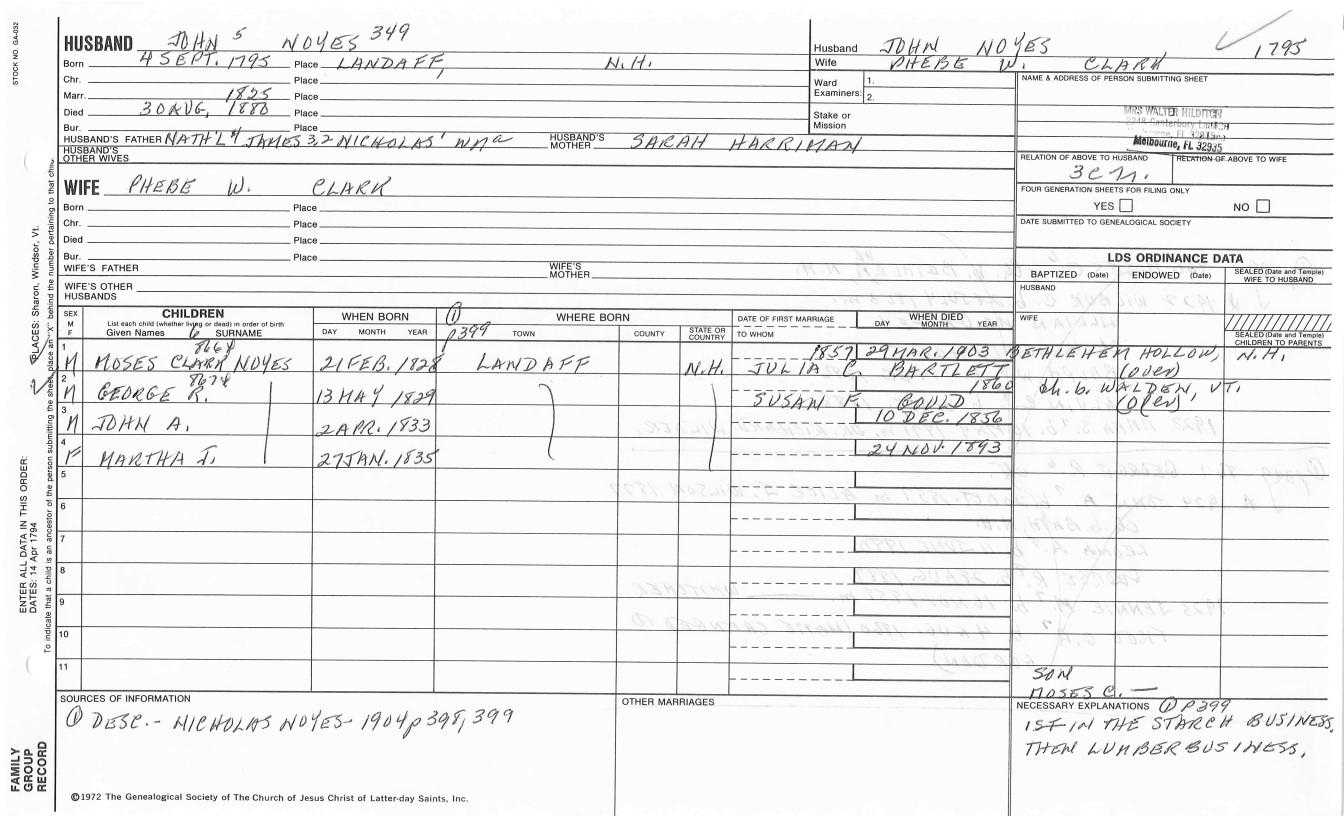 STOCK NO. GA-052
HUSBAND JOHN 5 NOYES 349
Born 4 SEPT. 1795 Place LANDAFF, N.H.
Chr. Place
Marr. 1825 Place
Died 30 AUG, 1880 Place
Bur. Place
HUSBAND'S FATHER NATH'L 4 JAMES 3,2 NICHOLAS' HUSBAND'S MOTHER SARAH HARRIMAN
HUSBAND'S OTHER WIVES
Husband JOHN NOYES 1795
Wife PHEBE W. CLARK
Ward Examiners: 1.
2.
Stake or Mission
NAME & ADDRESS OF PERSON SUBMITTING SHEET
MRS WALTER
Canterbury
Melbourne, FL 32935
RELATION OF ABOVE TO HUSBAND RELATION OF ABOVE TO WIFE
FOUR GENERATION SHEETS FOR FILING ONLY
YES NO
DATE SUBMITTED TO GENEALOGICAL SOCIETY
WIFE PHEBE W. CLARK
Born Place
Chr. Place
Died Place
Bur. Place
WIFE'S FATHER WIFE'S MOTHER
WIFE'S OTHER HUSBANDS
LDS ORDINANCE DATA
BAPTIZED (Date) ENDOWED (Date) SEALED (Date and Temple) WIFE TO HUSBAND
HUSBAND
WIFE
SEALED (Date and Temple) CHILDREN TO PARENTS
SEX M F
CHILDREN
List each child (whether living or dead) in order of birth
Given Names 6 SURNAME
WHEN BORN
DAY MONTH YEAR
① p399
WHERE BORN
TOWN COUNTY STATE OR COUNTRY
DATE OF FIRST MARRIAGE
TO WHOM
WHEN DIED
DAY MONTH YEAR
1 8664 1857 29 MAR. 1903 BETHLEHEM HOLLOW, N.H.
M MOSES CLARK NOYES 21 FEB. 1828 LANDAFF N.H. JULIA C. BARTLETT (over)
2 8674 1860 Ch. b. WALDEN, VT.
M GEORGE R. 13 MAY 1829 SUSAN F. GOULD (over)
3 10 DEC. 1856
M JOHN A. 2 APR. 1833
4 24 NOV. 1893
F MARTHA J. 27 JAN. 1835
5
6
7
8
9
10
11
SON
MOSES C. —
SOURCES OF INFORMATION
① DESC.- NICHOLAS NOYES- 1904 p 398, 399
OTHER MARRIAGES
NECESSARY EXPLANATIONS ① P399
IST IN THE STARCH BUSINESS,
THEN LUMBER BUSINESS.
©1972 The Genealogical Society of The Church of Jesus Christ of Latter-day Saints, Inc.
FAMILY GROUP RECORD
ENTER ALL DATA IN THIS ORDER:
DATES: 14 Apr 1794
PLACES: Sharon, Windsor, Vt.
To indicate that a child is an ancestor of the person submitting the sheet, place an "X" behind the number pertaining to that child.